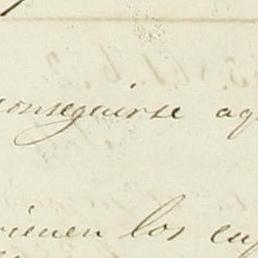 conseguirse aq
vienen los cuy